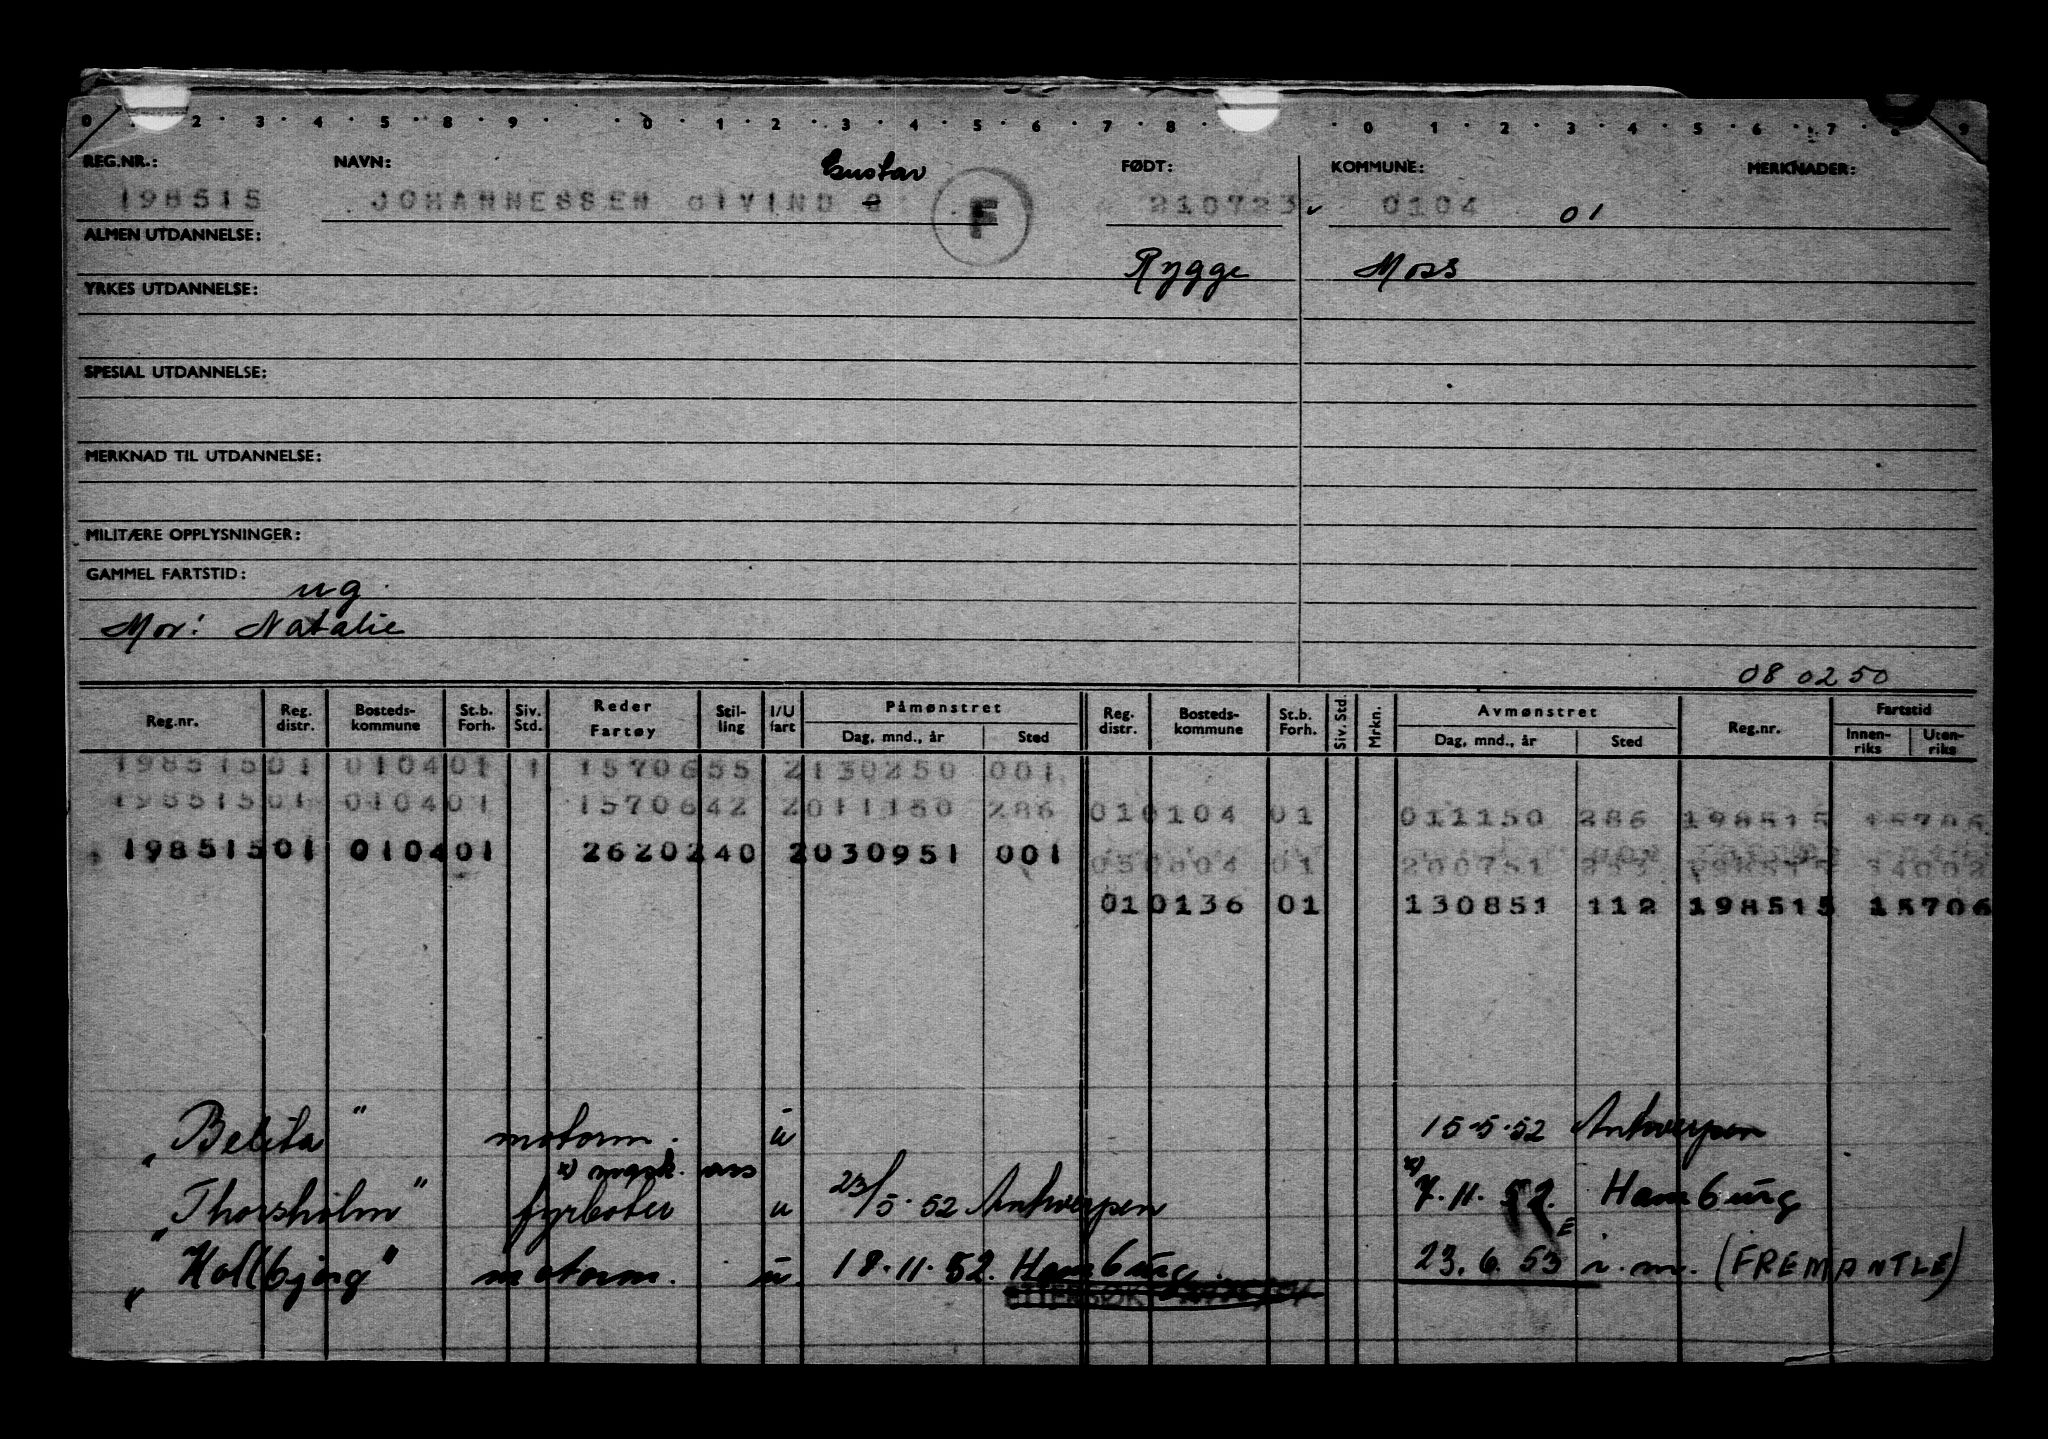 0 · 1 · 2 · 3 · 4 · 5 · 8 · 9 · · 0 · 1 · 2 · 3 · 4 · 5 · 6 · 7 · 8 · · 0 · 1 · 2 · 3 · 4 · 5 · 6 · 7 · 8 · 9
REG.NR.: NAVN: Gustav FØDT: KOMMUNE: MERKNADER:
198515 JOHANNESSEN OIVIND G F 210723 0104 01
ALMEN UTDANNELSE: Rygge Moss
YRKES UTDANNELSE:
SPESIAL UTDANNELSE:
MERKNAD TIL UTDANNELSE:
MILITÆRE OPPLYSNINGER:
GAMMEL FARTSTID: ug.
Mor: Natalie
08 02 50
Reg.nr. Reg. distr. Bosteds-kommune St.b. Forh. Siv. Std. Reder Fartøy Stil-ling I/U fart Påmønstret Dag, mnd., år Sted Reg. distr. Bosteds-kommune St.b. Forh. Siv. Std Mrkn. Avmønstret Dag, mnd., år Sted Reg.nr. Fartstid Innen-riks Uten-riks
198515 01 0104 01 1 1570655 2130250 001
198515 01 0104 01 1570642 2011150 286 010104 01 011150 286 198515 15706
198515 01 0104 01 2620240 2030951 001
01 200751 198515
010136 01 130851 112 198515 15706
„Belita" motorm. u 15-5-52 Antwerpen
x) mask. ass
„Thorsholm" fyrbøter u 23/5.52 Antwerpen x) 7.11.52. Hamburg
E
„Kollbjørg" motorm. u. 18.11.52. Hamburg. 23.6.53 i.m. (FREMANTLE)